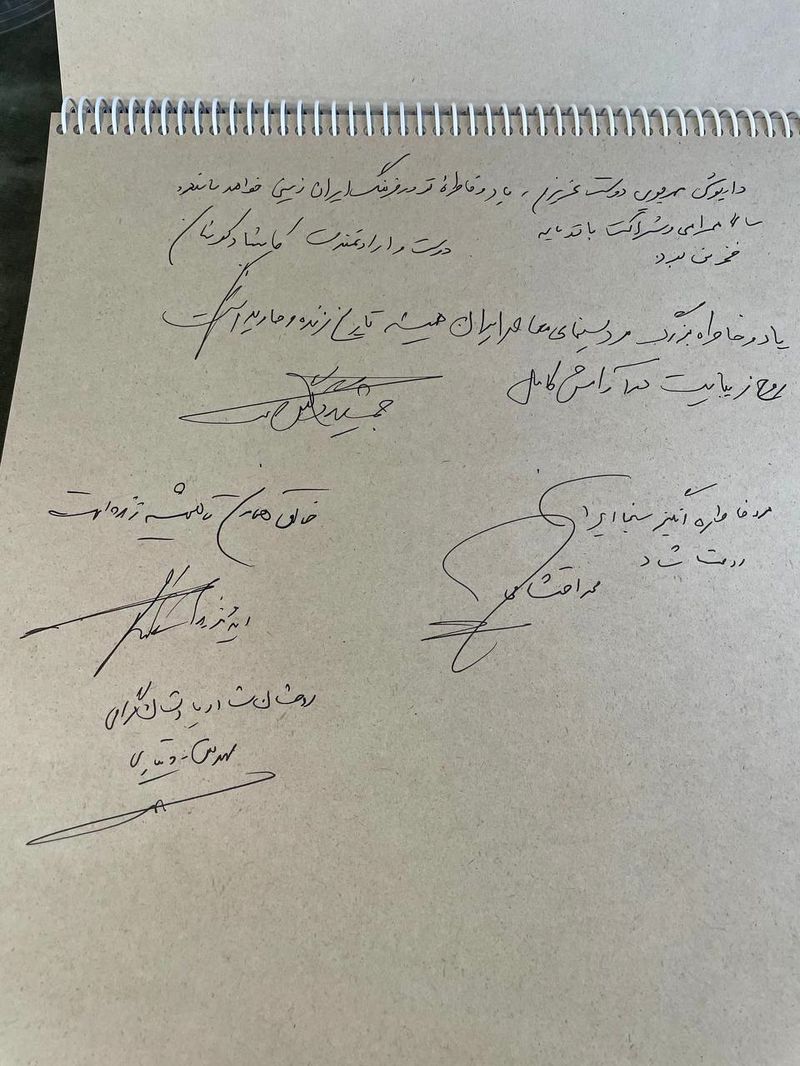 داریوش مهرجویی دوست عزیزم، یاد و خاطرۀ تو در فرهنگ ایران زمین خواهد ماند
سالها همراهی و شراکت با تو مایه
فخر من بود
دوست و ارادتمندت
یاد و خاطراه بزرگ مرد سینمای معاصر ایران همیشه تاریخ زنده و جاوید است
روح زیبایت در آرامش کامل
جمشید
خالق هامون تا همیشه زنده است
مرد خاطره انگیز سینما ایران
روحت شاد
روحشان شاد و یادشان گرامی